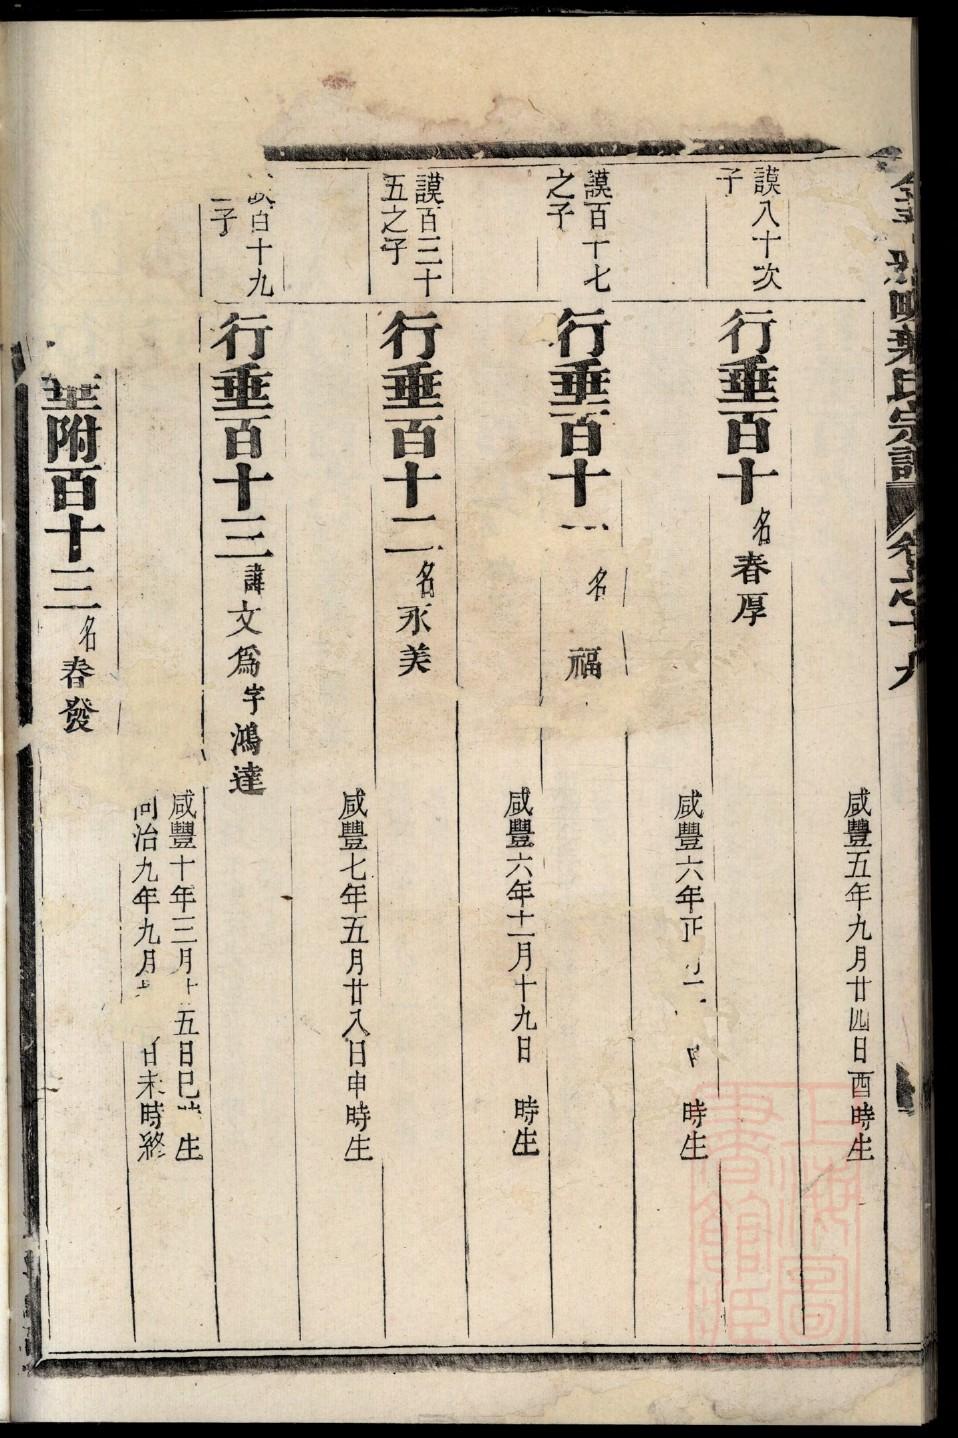 氏宗譜
卷之十九
咸豐五年九月廿四日酉時生
謨八十次
子
行垂百十名春厚
咸豐六年正 時生
謨百十七
之子
行垂百十一名 福
咸豐六年十一月十九日 時生
謨百三十
五之子
行垂百十二名永美
咸豐七年五月廿八日申時生
百十九
子
行垂百十三諱文為字鴻達
咸豐十年三月十五日巳 生
同治九年九月 日未時終
附百十三名春發
上海圖書館藏